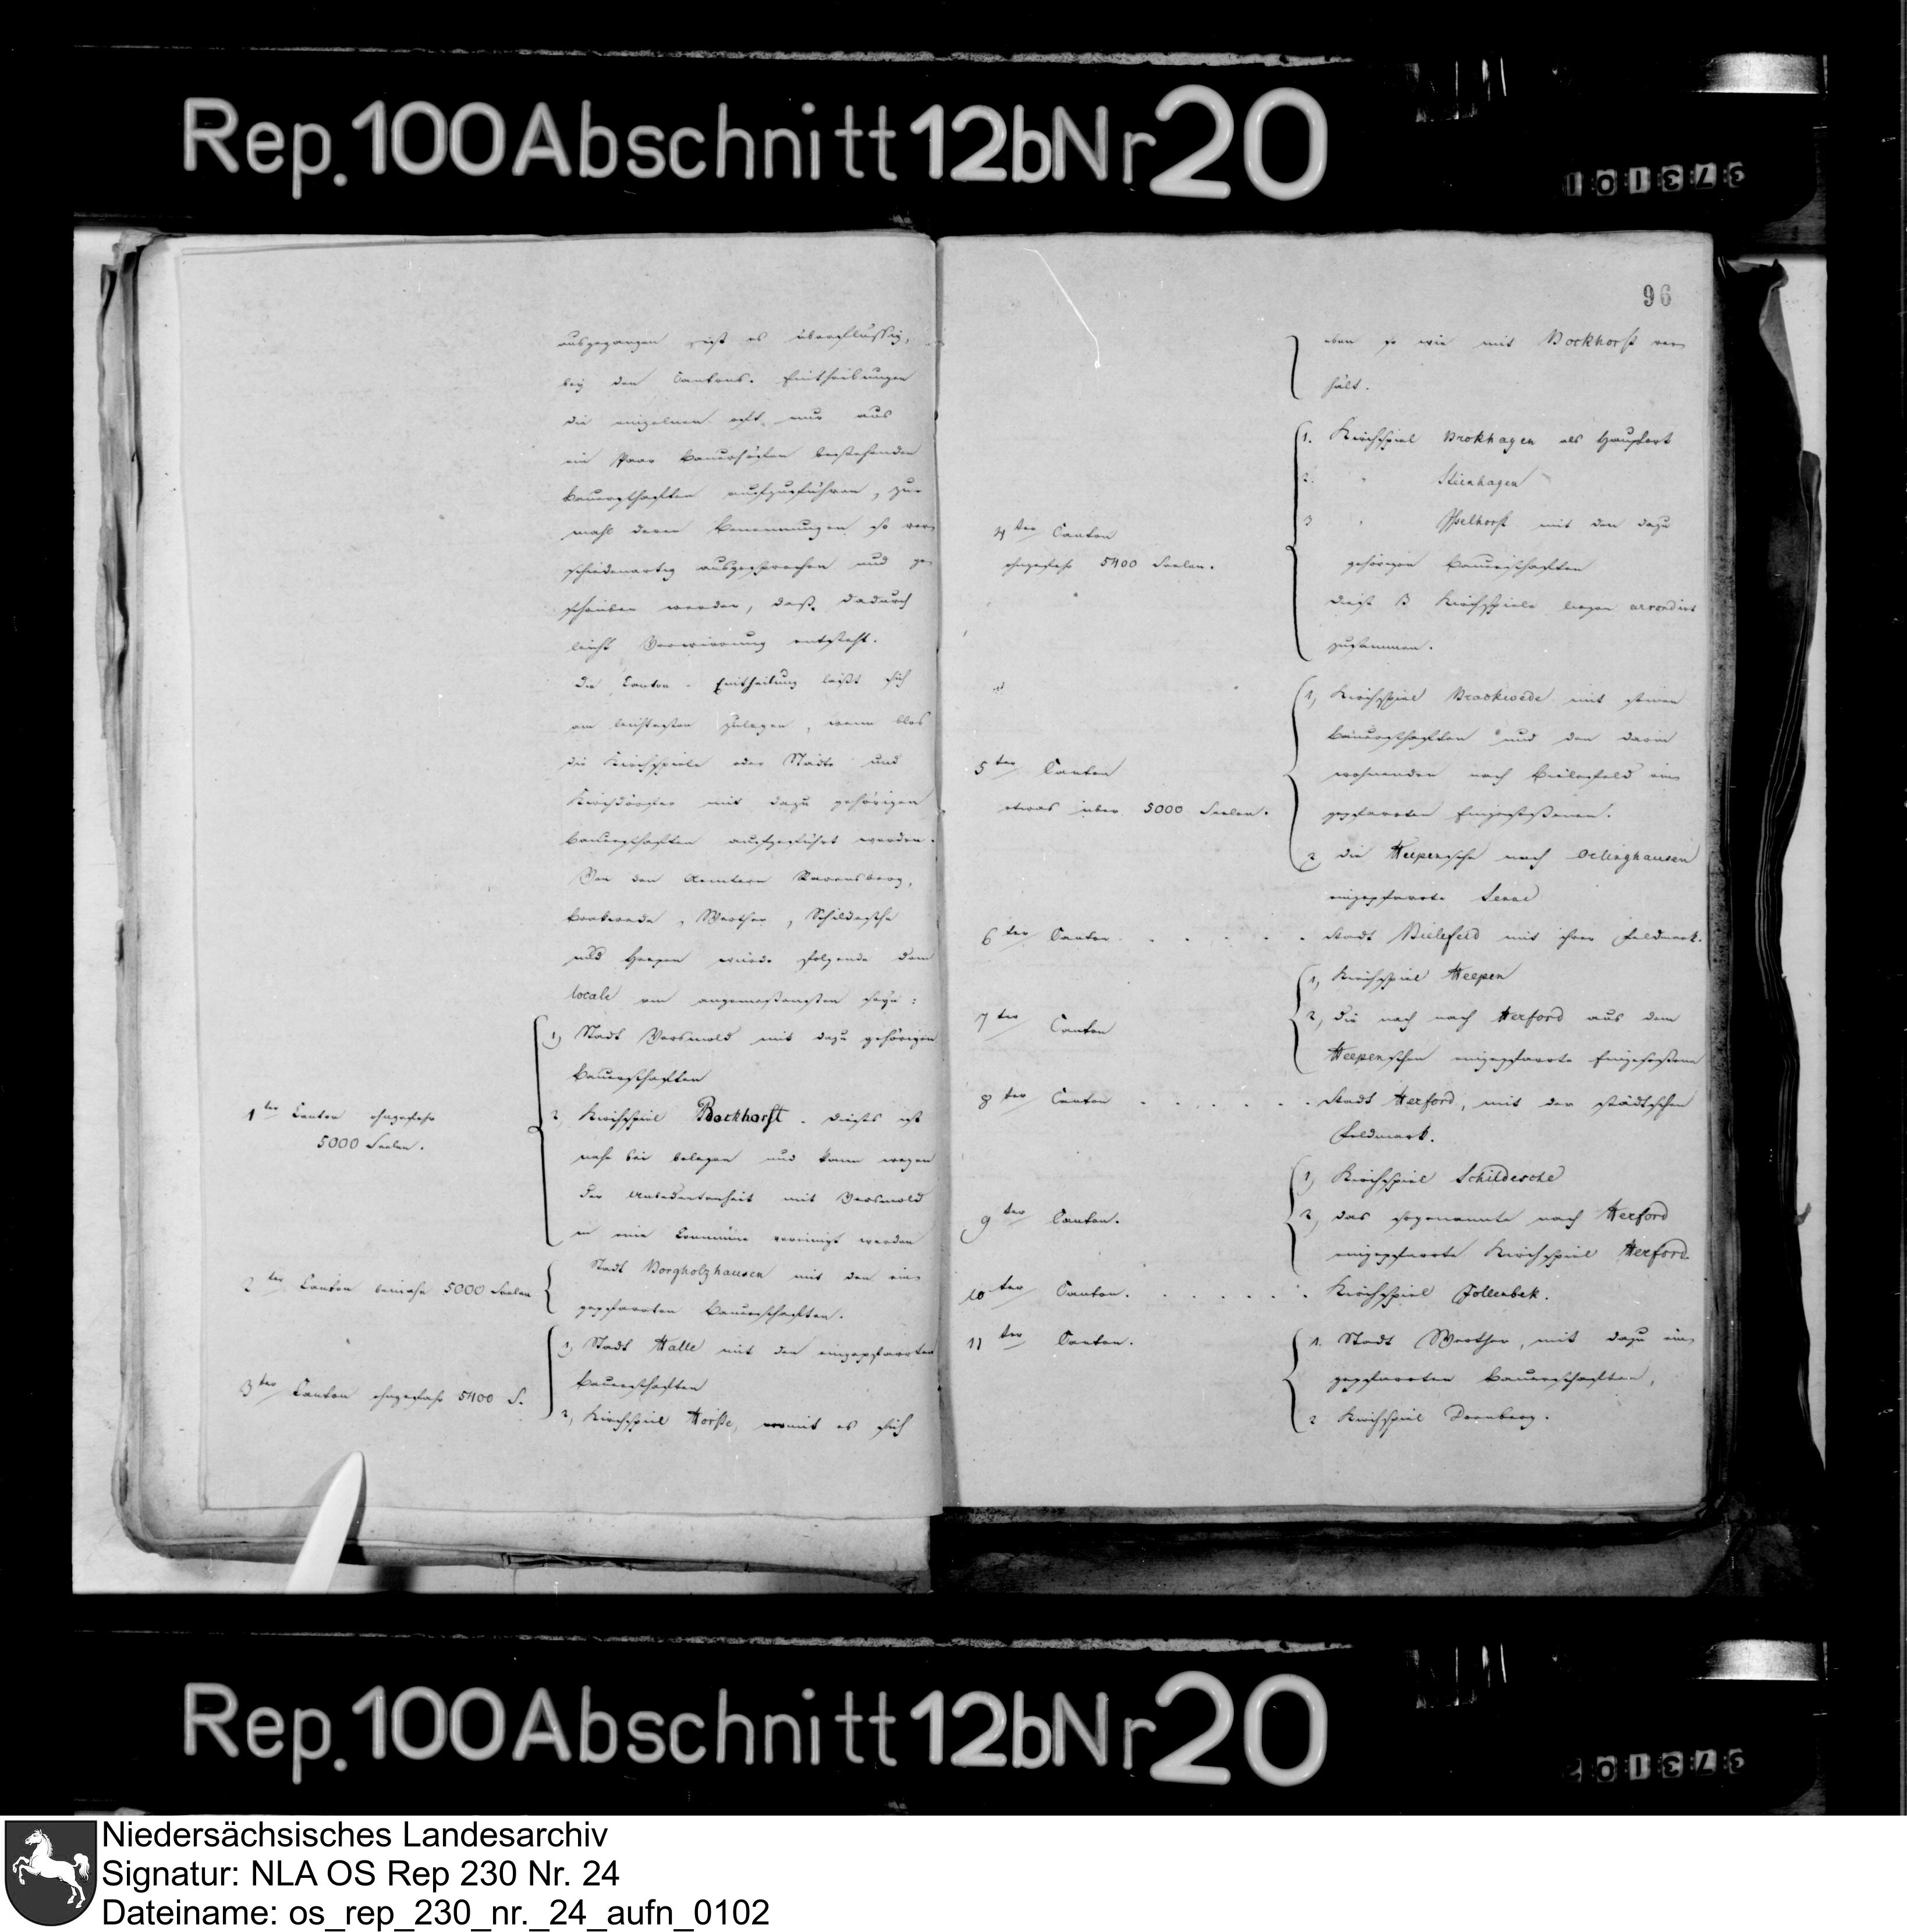 Rep. 100 Abschnitt 12b Nr 20
101373
ausgegangen ist es überflüssig,
bey den Cantons-Eintheilungen
die einzelnen oft nur aus
ein Paar Bauerhöfen bestehenden
Bauerschaften aufzuführen, zu-
mahl deren Benennungen so ver-
schiedenartig ausgesprochen und ge-
schrieben werden, daß dadurch
leicht Verwirrung entsteht.
Die Canton-Eintheilung läßt sich
am leichtesten zulegen, wenn blos
die Kirchspiele oder Städte und
Kirchdörfer mit dazu gehörigen
Bauerschaften aufgeführt werden.
Von den Aemtern Ravensberg,
Brakwede, Werther, Schildesche
und Heepen würde folgende dem
locale am angemessensten seyn:
1ter Canton ohngefehr
5000 Seelen.
1) Stadt Versmold mit dazu gehörigen
Bauerschaften
2, Kirchspiel Bockhorst. Dieses ist
nahe bei belegen und kann wegen
der Unbedeutenheit mit Versmold
in eine Commüne vereinigt werden
2ter Canton beinahe 5000 Seelen
Stadt Borgholzhausen mit den ein-
gepfarrten Bauerschaften.
3ter Canton ohngefehr 5400 S.
1) Stadt Halle mit den eingepfarrten
Bauerschaften
2, Kirchspiel Hörste, womit es sich
96
eben so wie mit Bockhorst ver-
hält.
4ter Canton
ohngefehr 5400 Seelen.
1. Kirchspiel Brokhagen als Hauptort
2. " Steinhagen
3 " Isselhorst mit den dazu
gehörigen Bauerschaften
diese 3 Kirchspiele liegen arrondirt
zusammen.
5ter Canton
etwas über 5000 Seelen.
1, Kirchspiel Brackwede mit seinen
Bauerschaften und den darin
wohnenden nach Bielefeld ein-
gepfarrten Eingesessenen.
2, die Heepensche nach Oelinghausen
eingepfarrte Senne
6ter Canton . . . . . Stadt Bielefeld mit ihrer Feldmark.
7ter Canton
1, Kirchspiel Heepen
2, die nach nach Herford aus dem
Heepenschen eingepfarrte Eingesessene
8ter Canton . . . . . . Stadt Herford, mit der städtschen
Feldmark.
9ter Canton.
1) Kirchspiel Schildesche
2, das sogenannte nach Herford
eingepfarrte Kirchspiel Herford.
10ter Canton. . . . . . Kirchspiel Jollenbek.
11ter Canton.
1. Stadt Werther, mit dazu ein-
gepfarrten Bauerschaften,
2 Kirchspiel Dornberg.
Rep. 100 Abschnitt 12b Nr 20
201373
Niedersächsisches Landesarchiv
Signatur: NLA OS Rep 230 Nr. 24
Dateiname: os_rep_230_nr._24_aufn_0102